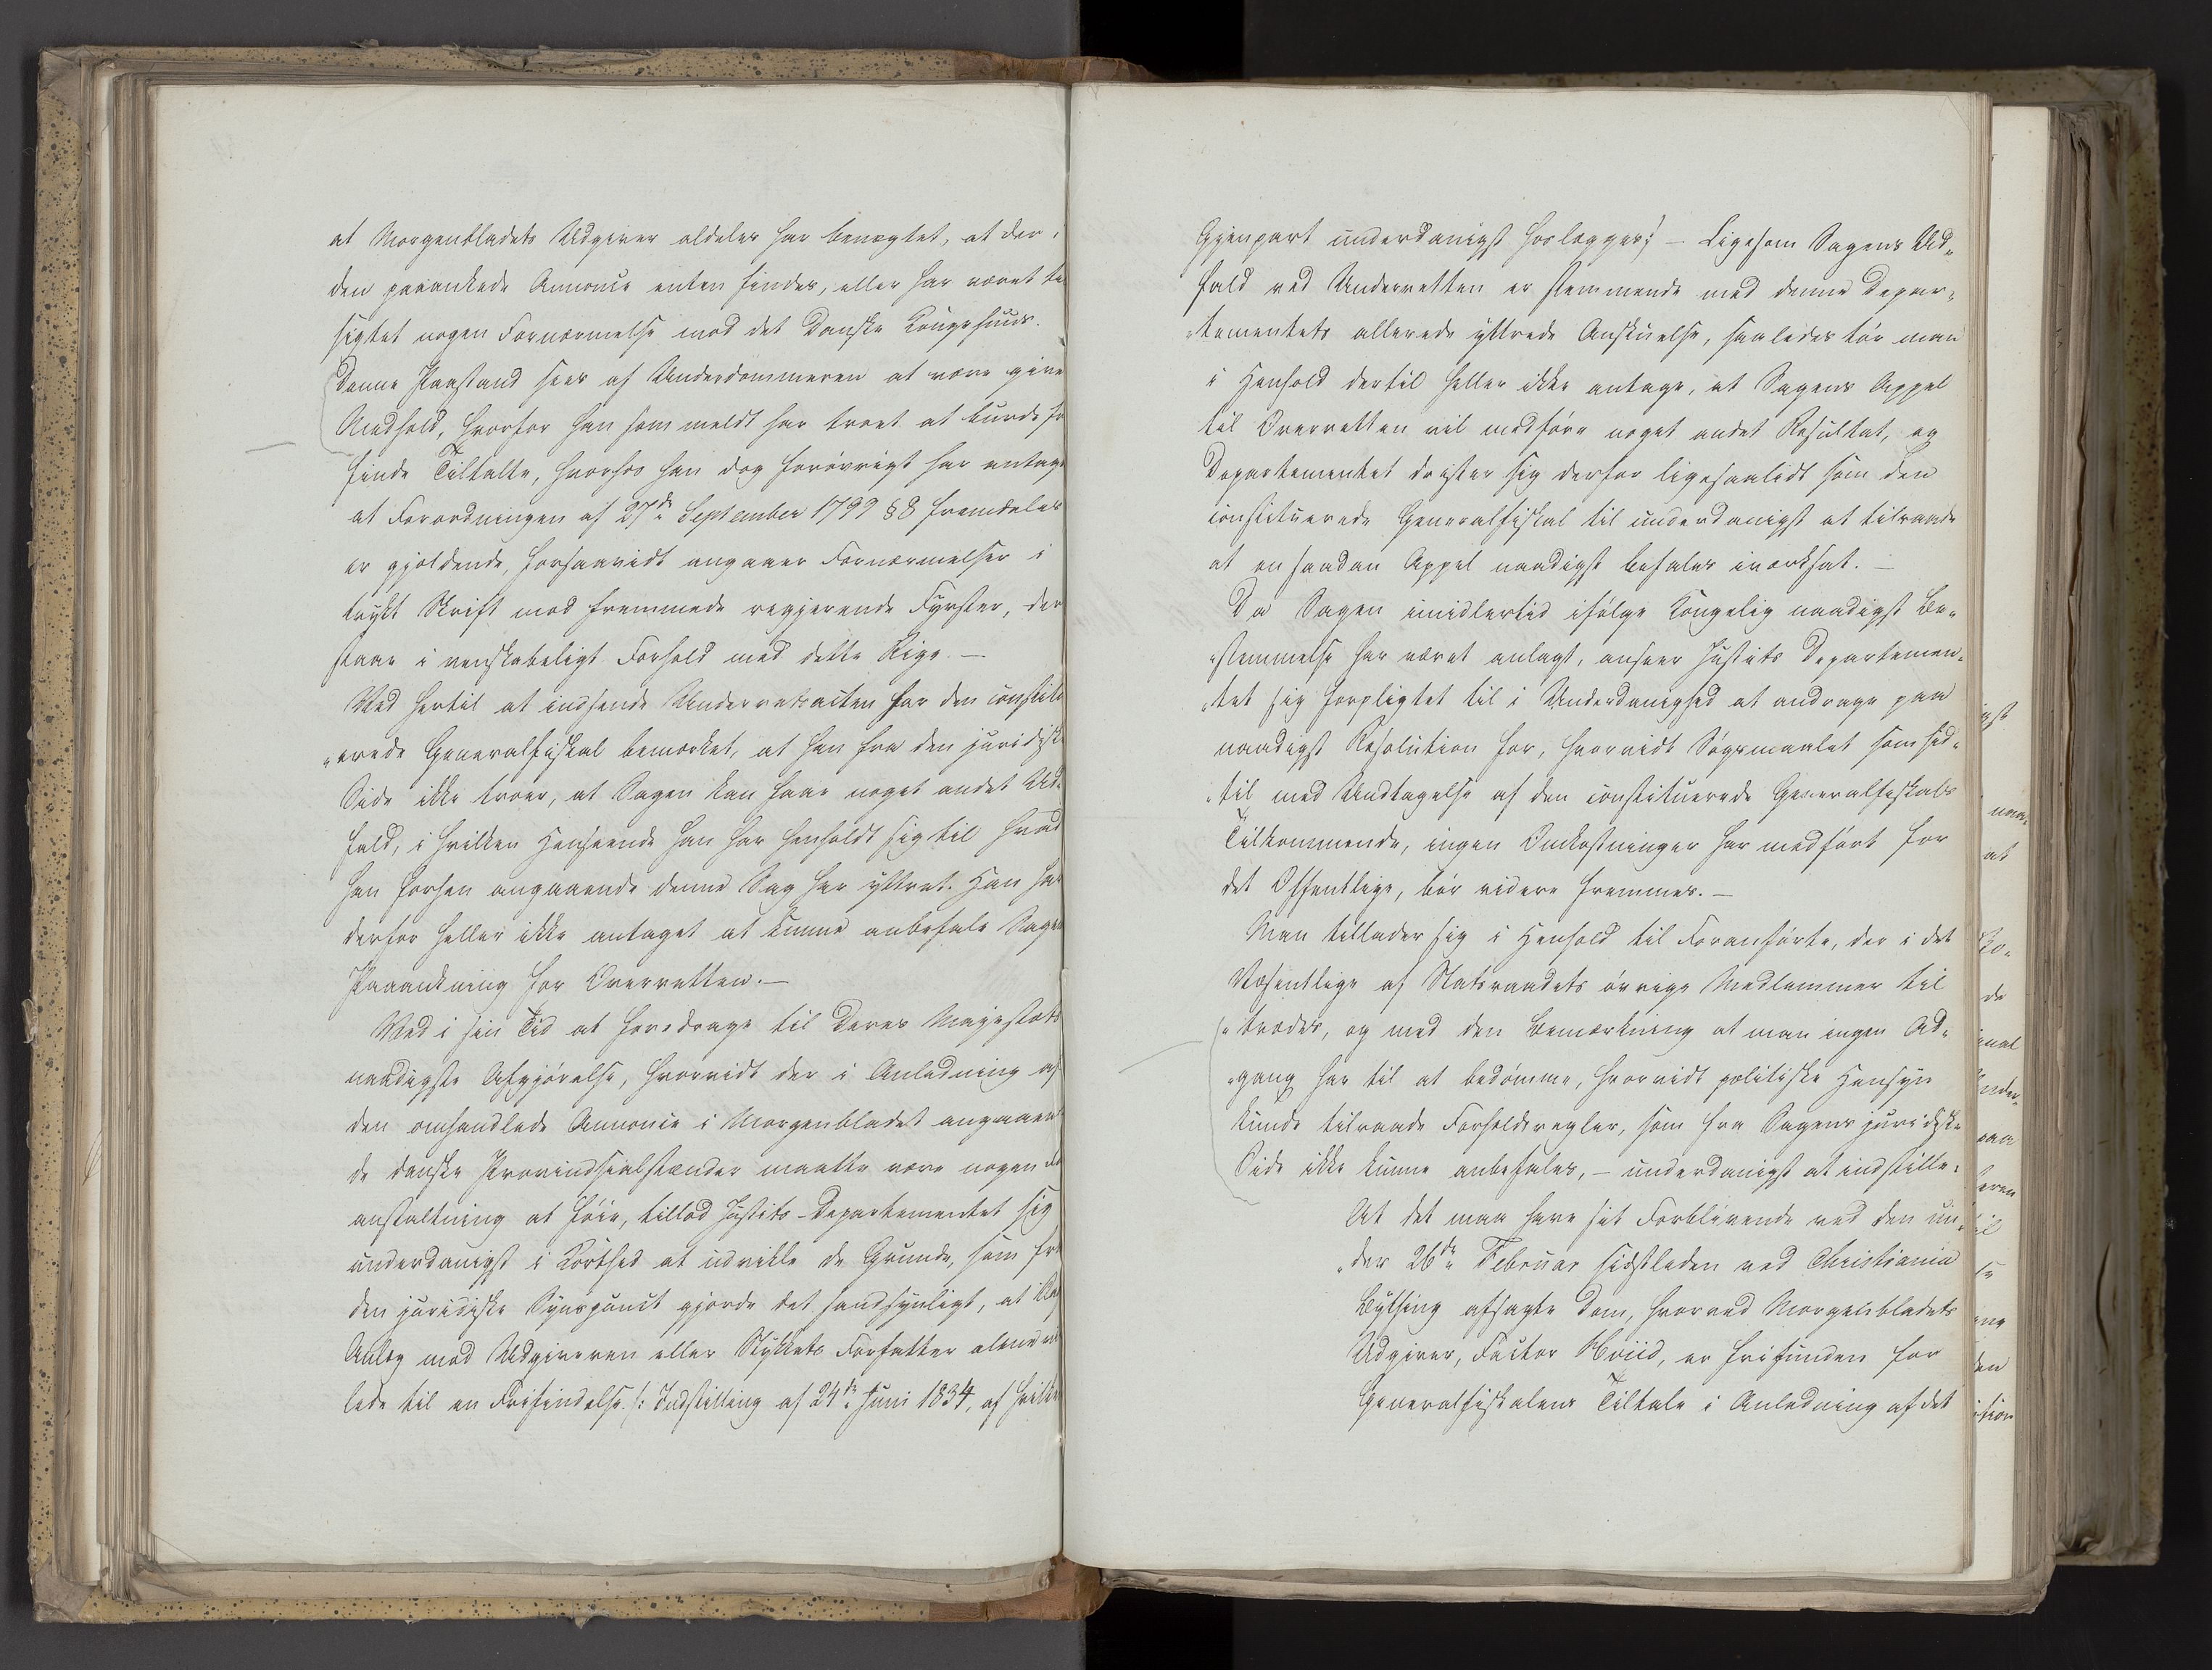 at Morgenbladets Udgiver aldeles har benægtet, at der i
den paaankede Annonce enten findes, eller har været til
sigtet nogen Fornærmelse mod det Danske Kongehuus.
Denne Paastand sees af Underdommeren at være given
Medhold, hvorfor han som meldt har troet at burde fri
finde Tiltalte, hvorhos han dog forøvrigt har antaget
at Forordningen af 27de September 1799 § 8 fremdeles
er gjeldende, forsaavidt angaaer Fornærmelser i
trykt Skrift mod fremmede regjerende Fyrster, der
staae i venskabeligt Forhold med dette Rige. —
Ved hertil at indsende Underretsacten har den constitu
„erede Generalfiskal bemærket, at han fra den juridiske
Side ikke troer, at Sagen kan faae noget andet Ud„
fald, i hvilken Henseende han har henholdt sig til hvad
han forhen angaaende denne Sag har yttret. Han har
derfor heller ikke antaget at kunne anbefale Sagens
Paaankning for Overretten. —
Ved i sin Tid at foredrage til Deres Majestæts
naadigste Afgjørelse, hvorvidt der i Anledning af
den omhandlede Annonce i Morgenbladet angaaende
de danske Provindsialstænder maatte være nogen For
anstaltning at føie, tillod Justits-Departementet sig
underdanigst i Korthed at udvikle de Grunde, som fra
den juridiske Synspunct gjorde det sandsynligt, at
Anlæg mod Udgiveren eller Stykkets Forfatter alene vil
lede til en Frifindelse. /: Indstilling af 24de Juni 1834, af hvilken
Gjenpart underdanigst hoslægges :/ — Ligesom Sagens Ud„
fald ved Underretten er stemmende med denne Depar„
„tementets allerede yttrede Anskuelse, saaledes tør man
i Henhold dertil heller ikke antage, at Sagens Appel
til Overretten vil medføre noget andet Resultat, og
Departementet drister sig derfor ligesaalidt som den
constituerede Generalfiskal til underdanigst at tilraade
at en saadan Appel naadigst befales iværksat. —
Da Sagen imidlertid ifølge Kongelig naadigst Be„
„stemmelse har været anlagt, anseer Justits Departemen„
„tet sig forpligtet til i Underdanighed at andrage paa
naadigst Resolution for, hvorvidt Søgsmaalet som hid„
„til med Undtagelse af den constituerede Generalfiskals
Tilkommende, ingen Omkostninger har medført for
det Offentlige, bør videre fremmes. —
Man tillader sig i Henhold til Foranførte, der i det
Væsentlige af Statsraadets øvrige Medlemmer til
„trædes, og med den Bemærkning at man ingen Ad„
„gang har til at bedømme, hvorvidt politiske Hensyn
kunde tilraade Forholdsregler, som fra Sagens juridiske
Side ikke kunne anbefales, — underdanigst at indstille:
At det maa have sit Forblivende ved den un„
„der 26de Februar sidstleden ved Christiania
Bything afsagte Dom, hvorved Morgenbladets
Udgiver, Factor Hviid, er frifunden for
Generalfiskalens Tiltale i Anledning af det